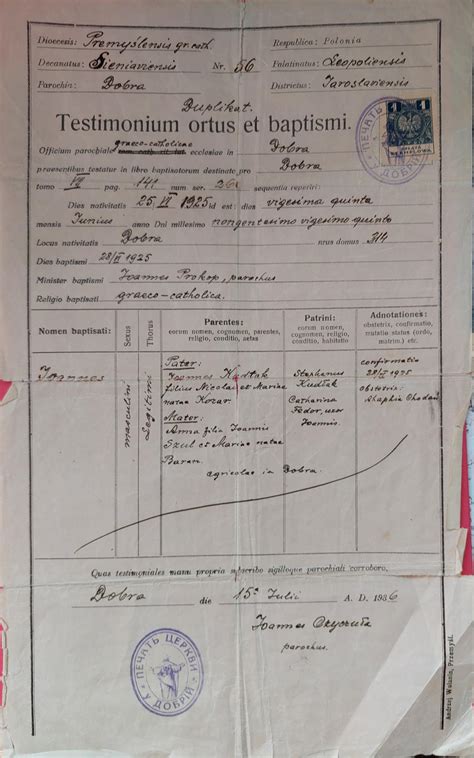 Dioecesis: Premyslensis gr. cath. Respublica: Polonia
Decanatus: Sieniaviensis Nr. 56 Palatinatus: Leopoliensis
Parochia: Dobra Districtus: Jaroslaviensis
Duplikat.
Testimonium ortus et baptismi.
graeco-catholicae
Officium parochiale ecclesiae in Dobra
praesentibus testatur in libro baptisatorum destinato pro Dobra
tomo VI pag. 141 num ser. 26 sequentia reperiri:
Dies nativitatis 25.VI 1925 id est: dies vigesima quinta
mensis Junius anno Dni millesimo nongentesimo vigesimo quinto
Locus nativitatis Dobra nrus domus 314
Dies baptismi 28/VI 1925
Minister baptismi Joannes Prokop, parochus
Religio baptisati graeco-catholica.
Nomen baptisati: Sexus Thorus Parentes: eorum nomen, cognomen, parentes, religio, conditio, aetas Patrini: eorum nomen, cognomen, religio, conditio, habitatio Adnotationes: obstetrix, confirmatio, mutatio status (ordo, matrim.) etc.
Joannes masculini Legitimi
Pater:
Joannes Kudłak
filius Nicolai et Mariae
natae Kozar
Mater:
Anna filia Joannis
Szul et Mariae natae
Baran.
agricolae in Dobra.
Stephanus
Kudłak
Catharina
Fedor, uxor
Joannis.
confirmatio
28/VI 1925
obstetrix:
Quas testimoniales manu propria subscribo sigilloque parochiali corroboro.
Dobra die 15 Julii A. D. 1936
Joannes
parochus.
ПЕЧАТЬ ЦЕРКВИ У ДОБРІЙ
ПЕЧАТЬ У ДОБРІЙ
1 1
Andrzej Przemyśl.